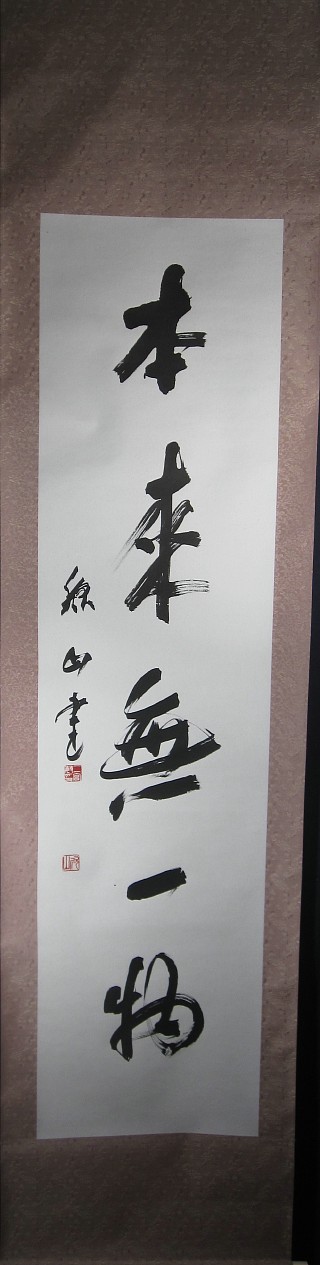 本来無一物
山書